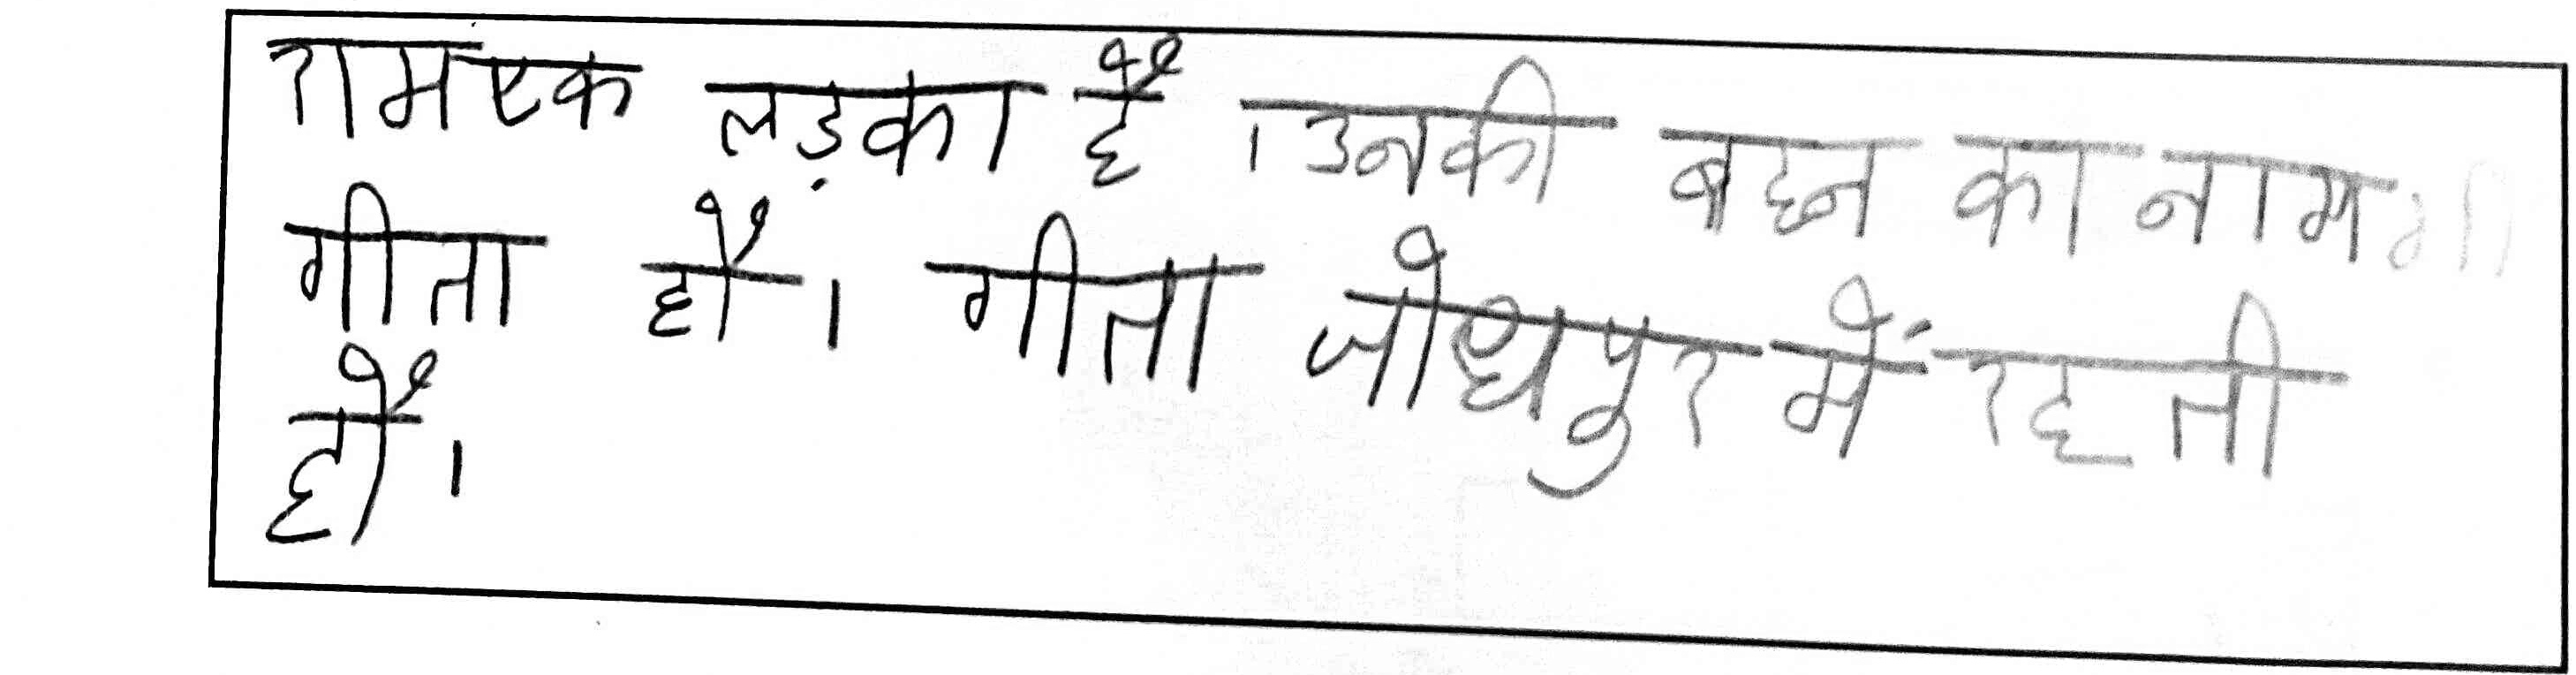 रामएक लड़का है । उनकी बहन का नाम
गीता हौ । गीता जोधपुर में रहती
हौ ।